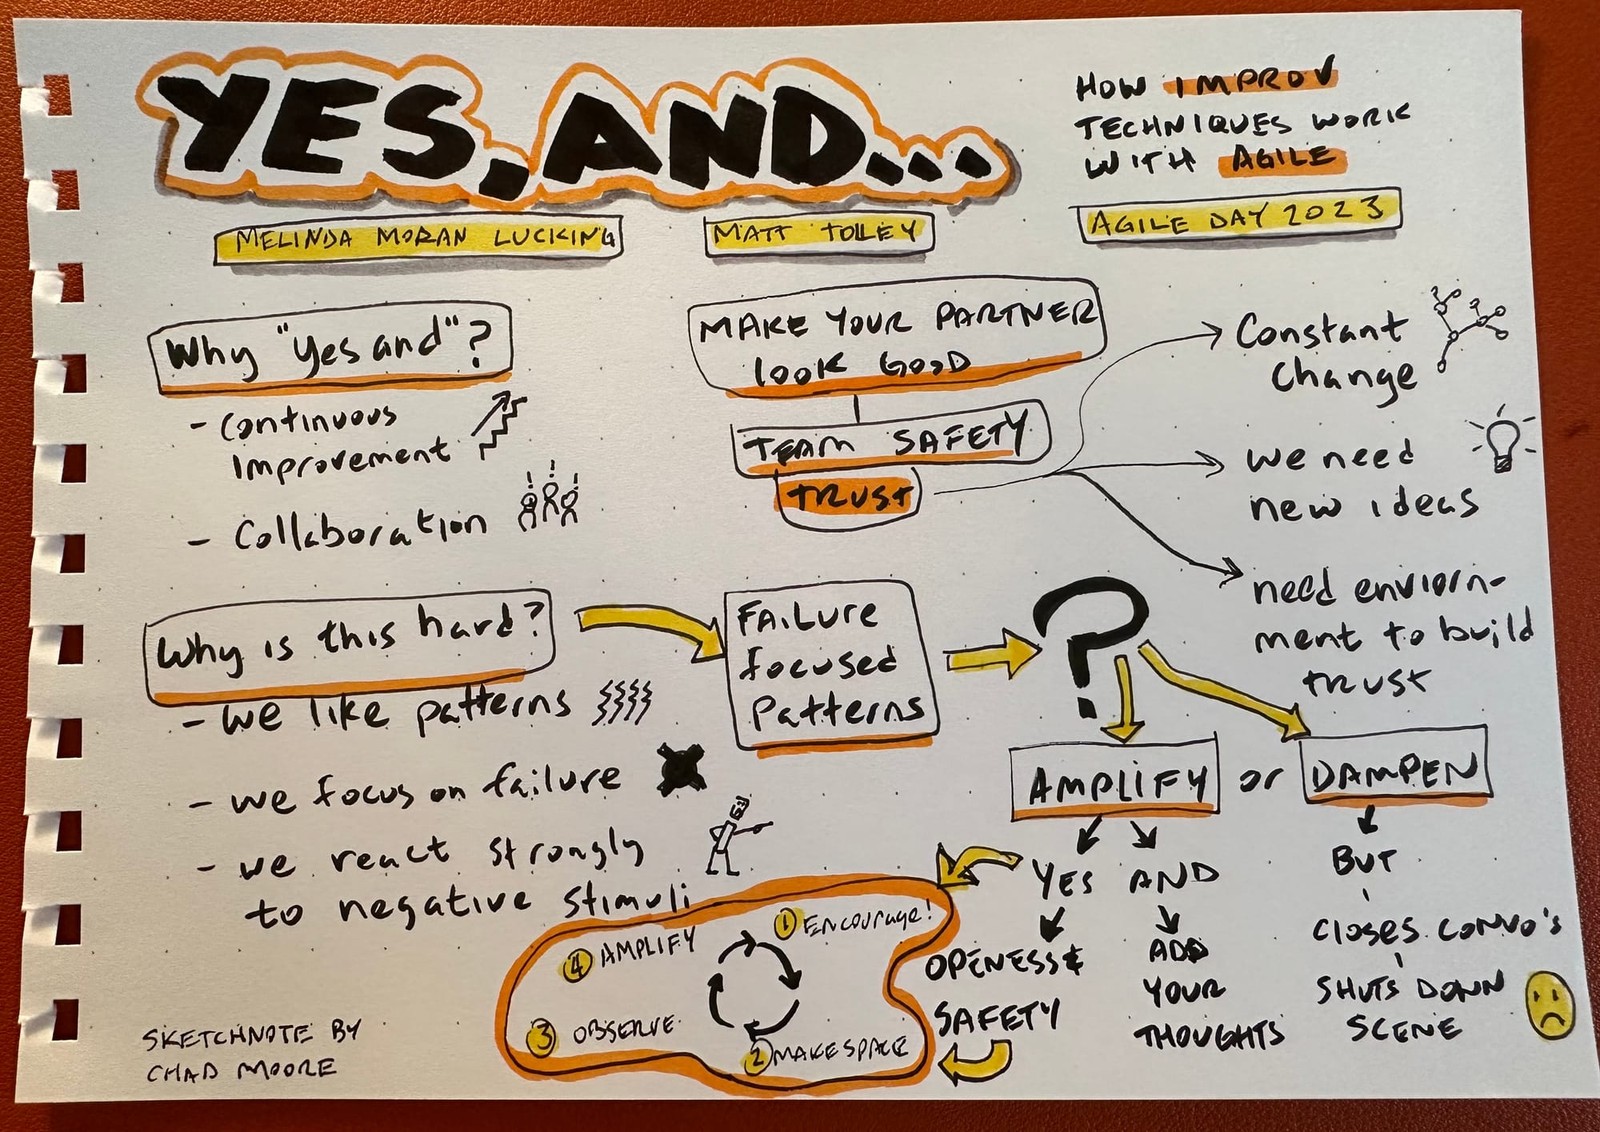 YES, AND...
HOW IMPROV
TECHNIQUES WORK
WITH AGILE
MELINDA MORAN LUCKING
MATT TOLLEY
AGILE DAY 2023
Why "yes and"?
- Continuous
Improvement
- Collaboration
MAKE YOUR PARTNER
look GOOD
TEAM SAFETY
TRUST
Constant
Change
we need
new ideas
need enviorn-
ment to build
trust
Why is this hard?
- we like patterns
- we focus on failure
- we react strongly
to negative stimuli
FAILURE
focused
Patterns
?
AMPLIFY or DAMPEN
YES AND
OPENESS &
SAFETY
ADD
YOUR
THOUGHTS
BUT
CLOSES CONVO'S
SHUTS DOWN
SCENE
1 ENCOURAGE!
2 MAKE SPACE
3 OBSERVE
4 AMPLIFY
SKETCHNOTE BY
CHAD MOORE